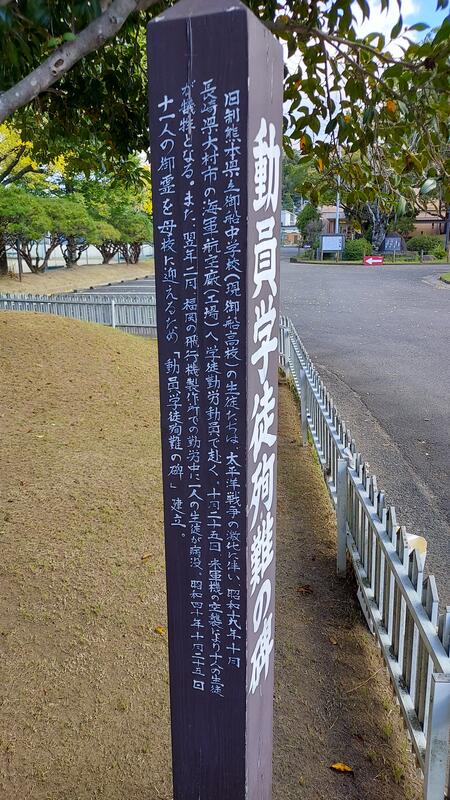 動員学徒殉難の碑
旧制熊本県立御船中学校(現御船高校)の生徒たちは、太平洋戦争の激化に伴い、昭和十九年十月
長崎県大村市の海軍航空廠(工場)へ学徒勤労動員で赴く。十月二十五日、米軍機の空襲により十人の生徒
が犠牲となる。また、翌年二月、福岡の飛行機製作所での勤労中に一人の生徒が病没。昭和四十年十月二十五日
十一人の御霊を母校に迎えるため「動員学徒殉難の碑」建立。